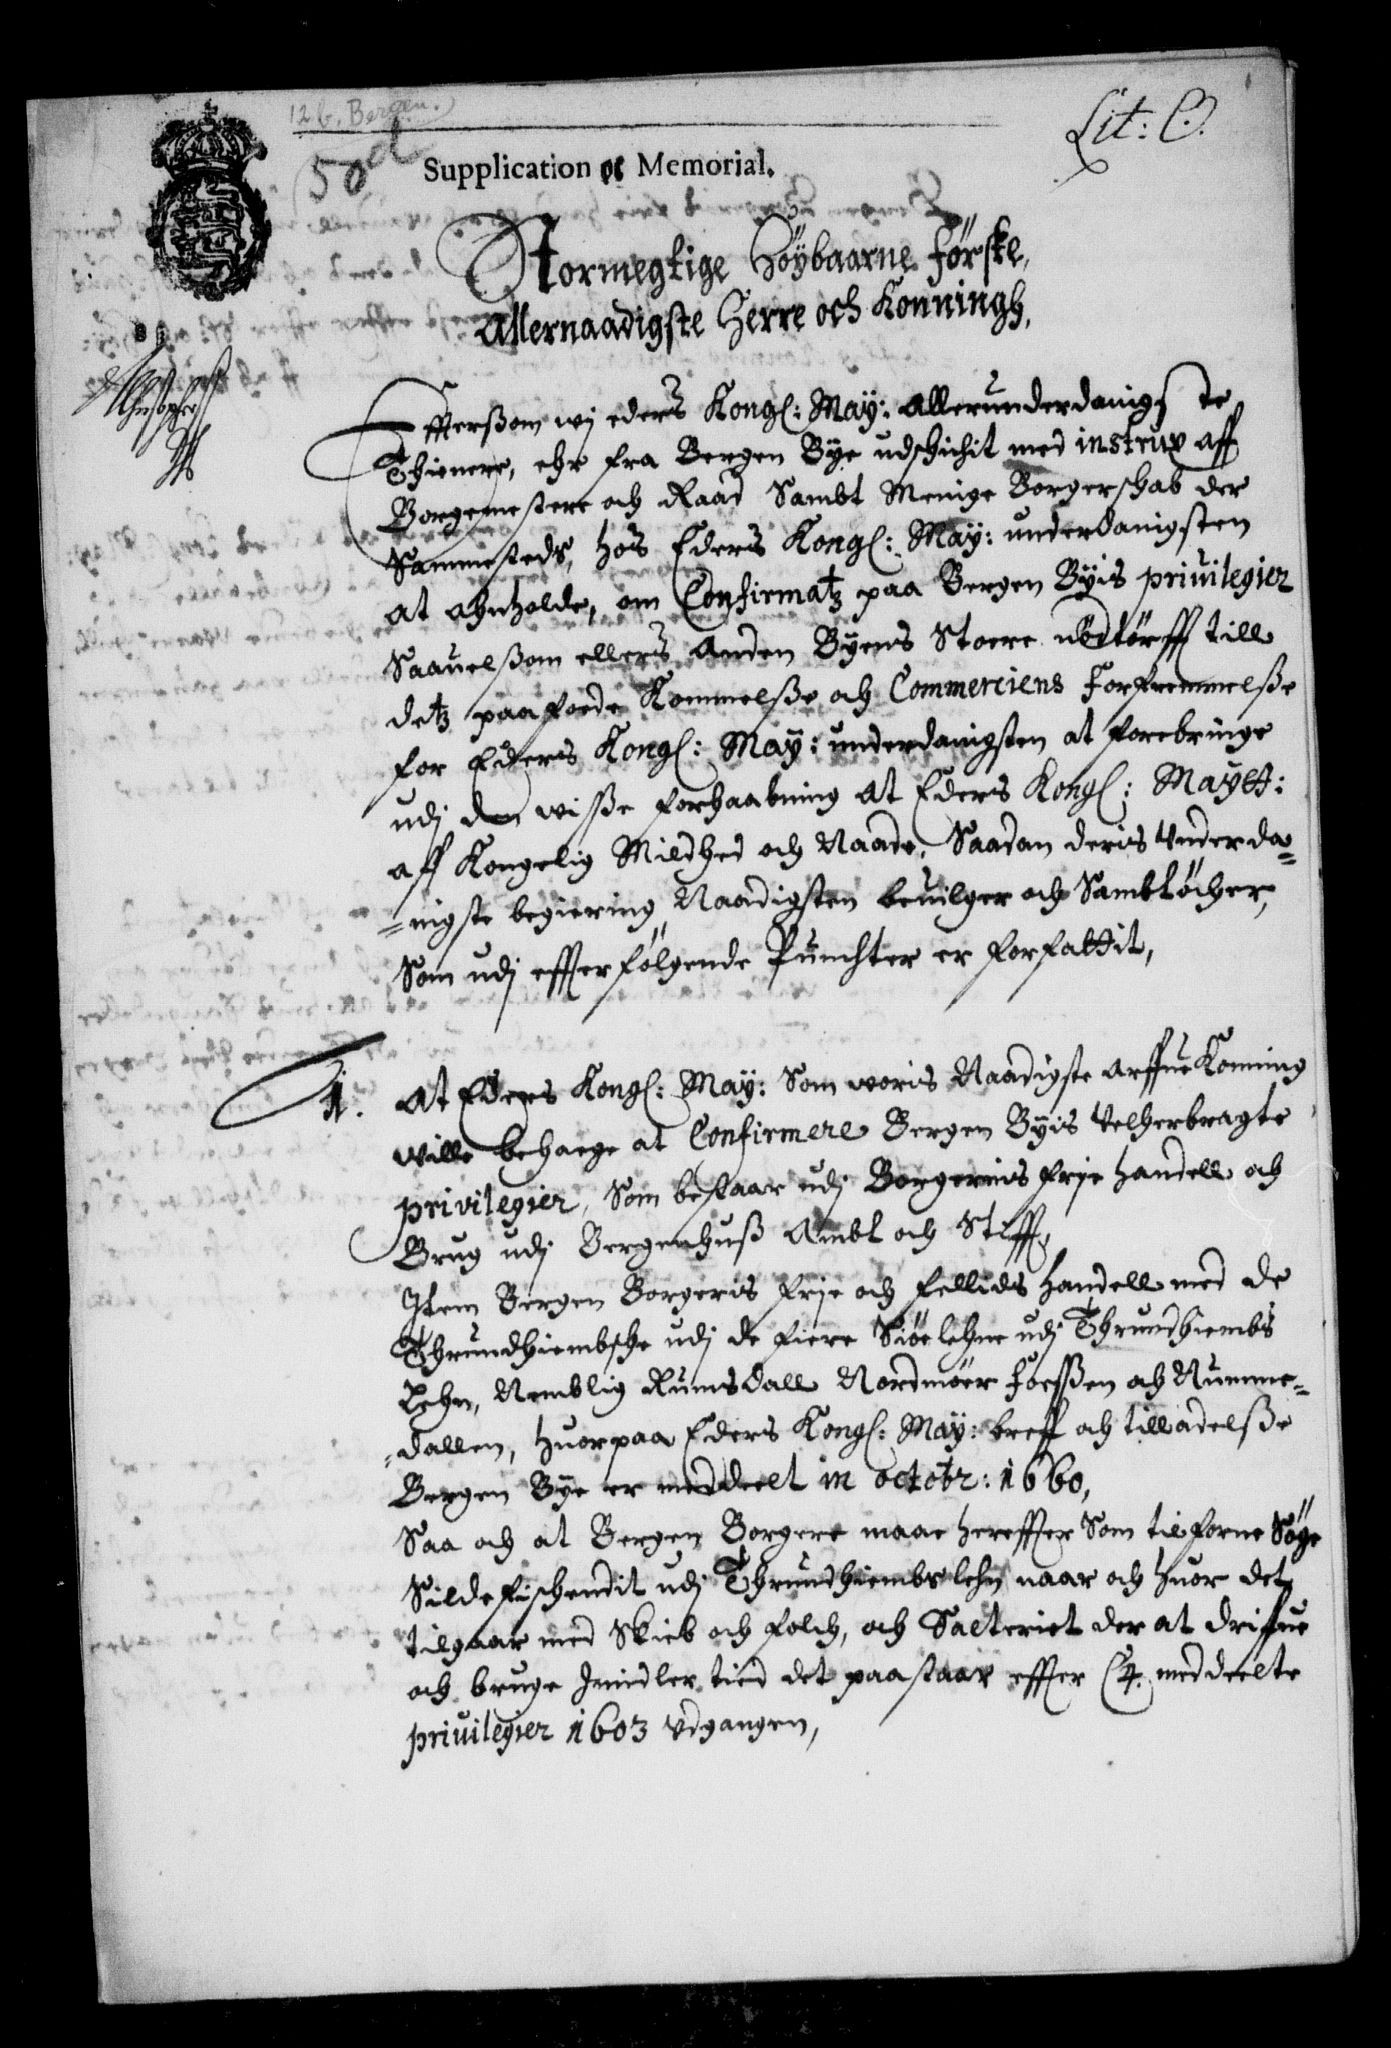 12 b, Bergen.
Lit: C.
50d
Supplication oc Memorial.
Stormegtige Höybaarne Første,
Allernaadigste Herre och Konningh,
Effterßom wj eders Kongl: May: Allerunderdanigste
Thienere, ehr fra Bergen Bye udschichit med instrux aff
Borgemestere och Raad Sambt Menige Borgerschab der
Sammesteds, hos Eders Kongl: May: underdanigsten
at ahnholde, om Confirmatz paa Bergen Byis privilegier
Saauelßom ellers anden Byens Stoere nödtørfft till
detz paafoede Kommelße och Commerciens Forfremmelße
for Eders Kongl: May: underdanigsten at forebringe
udj den wisse forhaabning at Eders Kongl: Maytt:
aff Kongelig Mildhed och Naade, Saadan deris Underda=
=nigste begiering Naadigsten beuilger och Samtöcher,
Som udj effterfölgende Punchter er forfattit,
1. At Eders Kongl: May: Som woris Naadigste arffue Konning
wille behaege at Confirmere Bergen Byis velherbragte
privilegier, Som bestaar udj Borgernis frje handell och
Brug udj Bergenhuß Ambt och Stifft,
Item Bergen Borgeris frje och fellids handell med de
Thrundhiembsche udj de fiere Siöelehne udj Thrundhiembs
Lehn, Nemblig Rumsdall Nordmöer Foeßen och Numme=
=dallen, huorpaa Eders Kongl: May: breff och tilladelße
Bergen Bye er meddeelt in octobr: 1660,
Saa och at Bergen Borgere maae hereffter Som tilforne Söge
Silde fischendit udj Thrundhiembs lehn naar och huor det
tilgaar med Skieb och folch, och Salteriet der at driffue
och bruge Imidler tied det paastaar effter C4. meddeelte
privilegier 1603 udgangen,